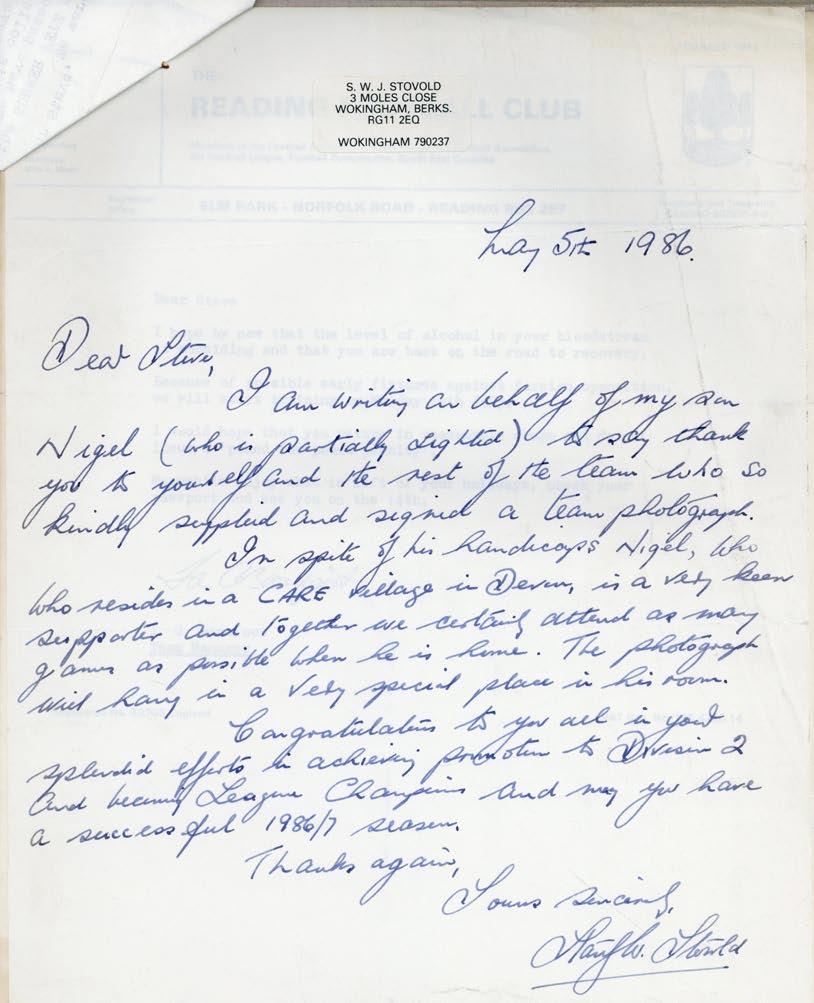 S. W. J. STOVOLD
3 MOLES CLOSE
WOKINGHAM, BERKS.
RG11 2EQ
WOKINGHAM 790237
THE
READING CLUB
ELM PARK - NORFOLK ROAD - READING
May 5th 1986.
Dear Steve
I hope by now that the level of alcohol in your bloodstream
and that you are back on the road to recovery.
Dear Steve,
I am writing on behalf of my son
Nigel (who is partially sighted) to say thank
you to yourself and the rest of the team who so
kindly supplied and signed a team photograph.
In spite of his handicaps Nigel, who
who resides in a CARE village in Devon, is a very keen
supporter and together we certainly attend as many
games as possible when he is home. The photograph
will hang in a very special place in his room.
Congratulations to you all in your
splendid efforts in achieving promotion to Division 2
and becoming League Champions and may you have
a successful 1986/7 season.
Thanks again,
Yours sincerely,
W. Stovold